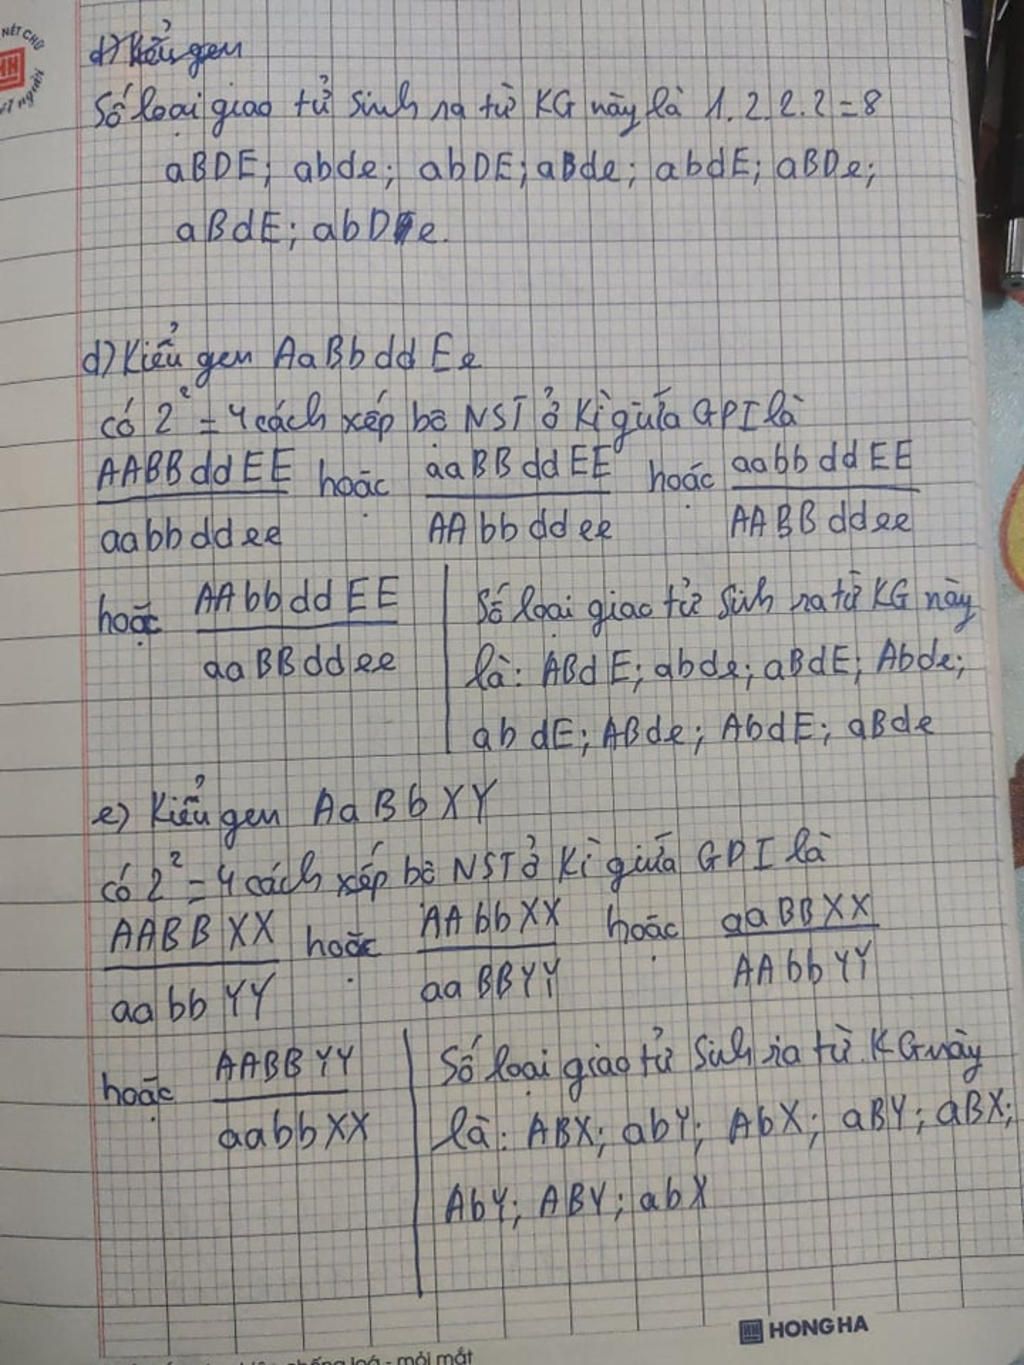 NÉT CHỮ
nết người
d) Kiểu gen
Số loại giao tử sinh ra từ KG này là 1.2.2.2=8
aBDE; abde; abDE; aBde; abdE; aBDe;
aBdE; abDe.
d) Kiểu gen AaBbddEe
có 2² = 4 cách xếp bộ NST ở Kì giữa GPI là
AABBddEE hoặc aaBBddEE hoặc aabbddEE
aabbddee AAbbddee AABBddee
hoặc AAbbddEE
aaBBddee
Số loại giao tử sinh ra từ KG này
là: ABdE; abde; aBdE; Abde;
abdE; ABde; AbdE; aBde
e) Kiểu gen AaBbXY
có 2² = 4 cách xếp bộ NST ở Kì giữa GPI là
AABBXX hoặc AAbbXX hoặc aaBBXX
aabbYY aaBBYY AAbbYY
hoặc AABBYY
aabbXX
Số loại giao tử sinh ra từ KG này
là: ABX; abY; AbX; aBY; aBX;
AbY; ABY; abX
HONG HA
chống loá - mỏi mắt